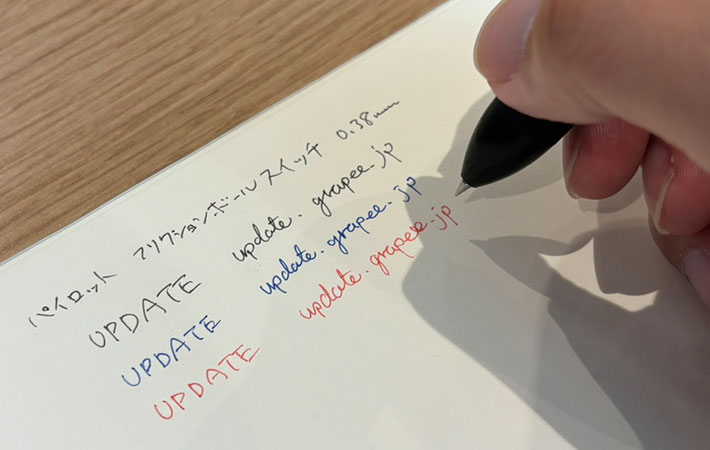 パイロット フリクションボールスイッチ 0.38mm
UPDATE update.grapee.jp
UPDATE update.grapee.jp
UPDATE update.grapee.jp